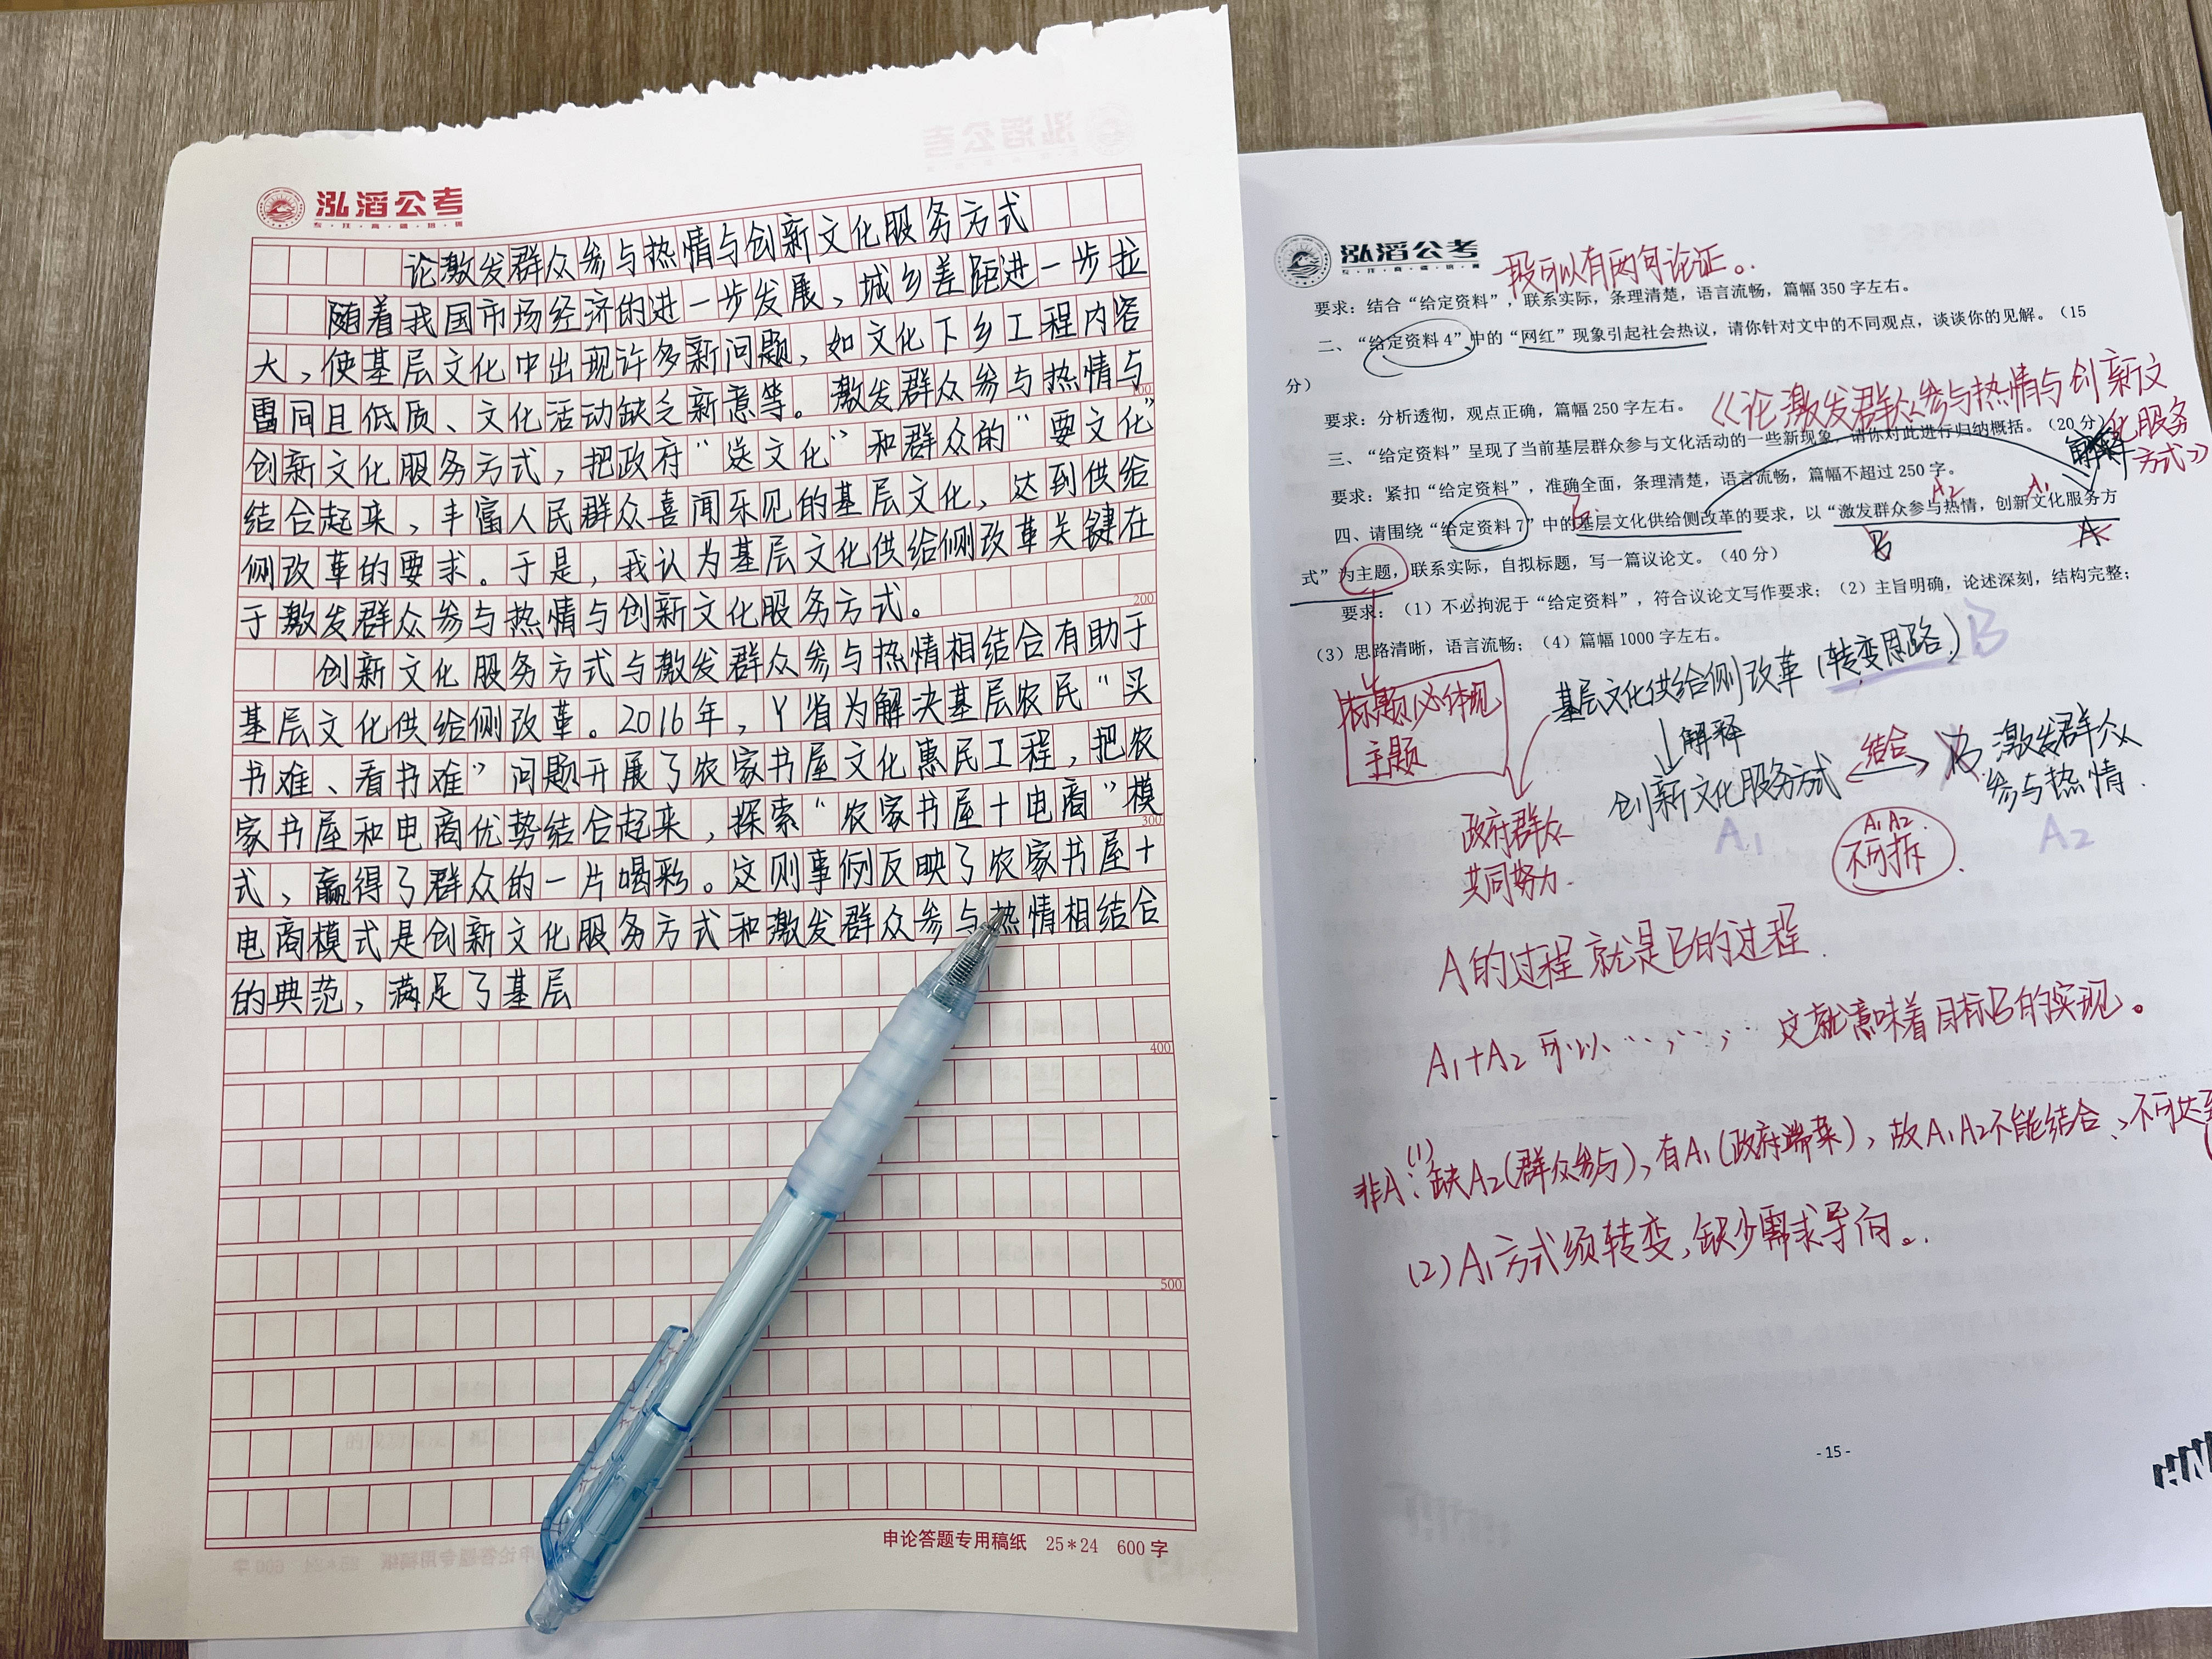 泓滔公考
论激发群众参与热情与创新文化服务方式
随着我国市场经济的进一步发展、城乡差距进一步拉
大，使基层文化中出现许多新问题，如文化下乡工程内容
雷同且低质、文化活动缺乏新意等。激发群众参与热情与
100
创新文化服务方式，把政府“送文化”和群众的“要文化”
结合起来，丰富人民群众喜闻乐见的基层文化，达到供给
侧改革的要求。于是，我认为基层文化供给侧改革关键在
于激发群众参与热情与创新文化服务方式。
200
创新文化服务方式与激发群众参与热情相结合有助于
基层文化供给侧改革。2016年，Y省为解决基层农民“买
书难、看书难”问题开展了农家书屋文化惠民工程，把农
家书屋和电商优势结合起来，探索“农家书屋+电商”模
300
式，赢得了群众的一片喝彩。这则事例反映了农家书屋+
电商模式是创新文化服务方式和激发群众参与热情相结合
的典范，满足了基层
400
500
申论答题专用稿纸 25*24 600字
泓滔公考
一段可以有两句论证。
要求：结合“给定资料”，联系实际，条理清楚，语言流畅，篇幅350字左右。
二、“给定资料4”中的“网红”现象引起社会热议，请你针对文中的不同观点，谈谈你的见解。（15
分）
要求：分析透彻，观点正确，篇幅250字左右。
《论激发群众参与热情与创新文
化服务
方式》
三、“给定资料”呈现了当前基层群众参与文化活动的一些新现象，请你对此进行归纳概括。（20分）
解释
要求：紧扣“给定资料”，准确全面，条理清楚，语言流畅，篇幅不超过250字。
B A2 A1
四、请围绕“给定资料7”中的基层文化供给侧改革的要求，以“激发群众参与热情，创新文化服务方
B A
式”为主题，联系实际，自拟标题，写一篇议论文。（40分）
要求：（1）不必拘泥于“给定资料”，符合议论文写作要求；（2）主旨明确，论述深刻，结构完整；
（3）思路清晰，语言流畅；（4）篇幅1000字左右。
标题必体现
主题
基层文化供给侧改革（转变思路）B
解释
创新文化服务方式 结合 激发群众
参与热情.
A1 A2
政府群众
共同努力.
A1 A2
不可拆
A的过程就是B的过程.
A1+A2 可以…；…；… 这就意味着目标B的实现。
非A：(1)缺A2(群众参与)，有A1(政府端菜)，故A1A2不能结合，不可达到
(2)A1方式须转变，缺少需求导向。
- 15 -